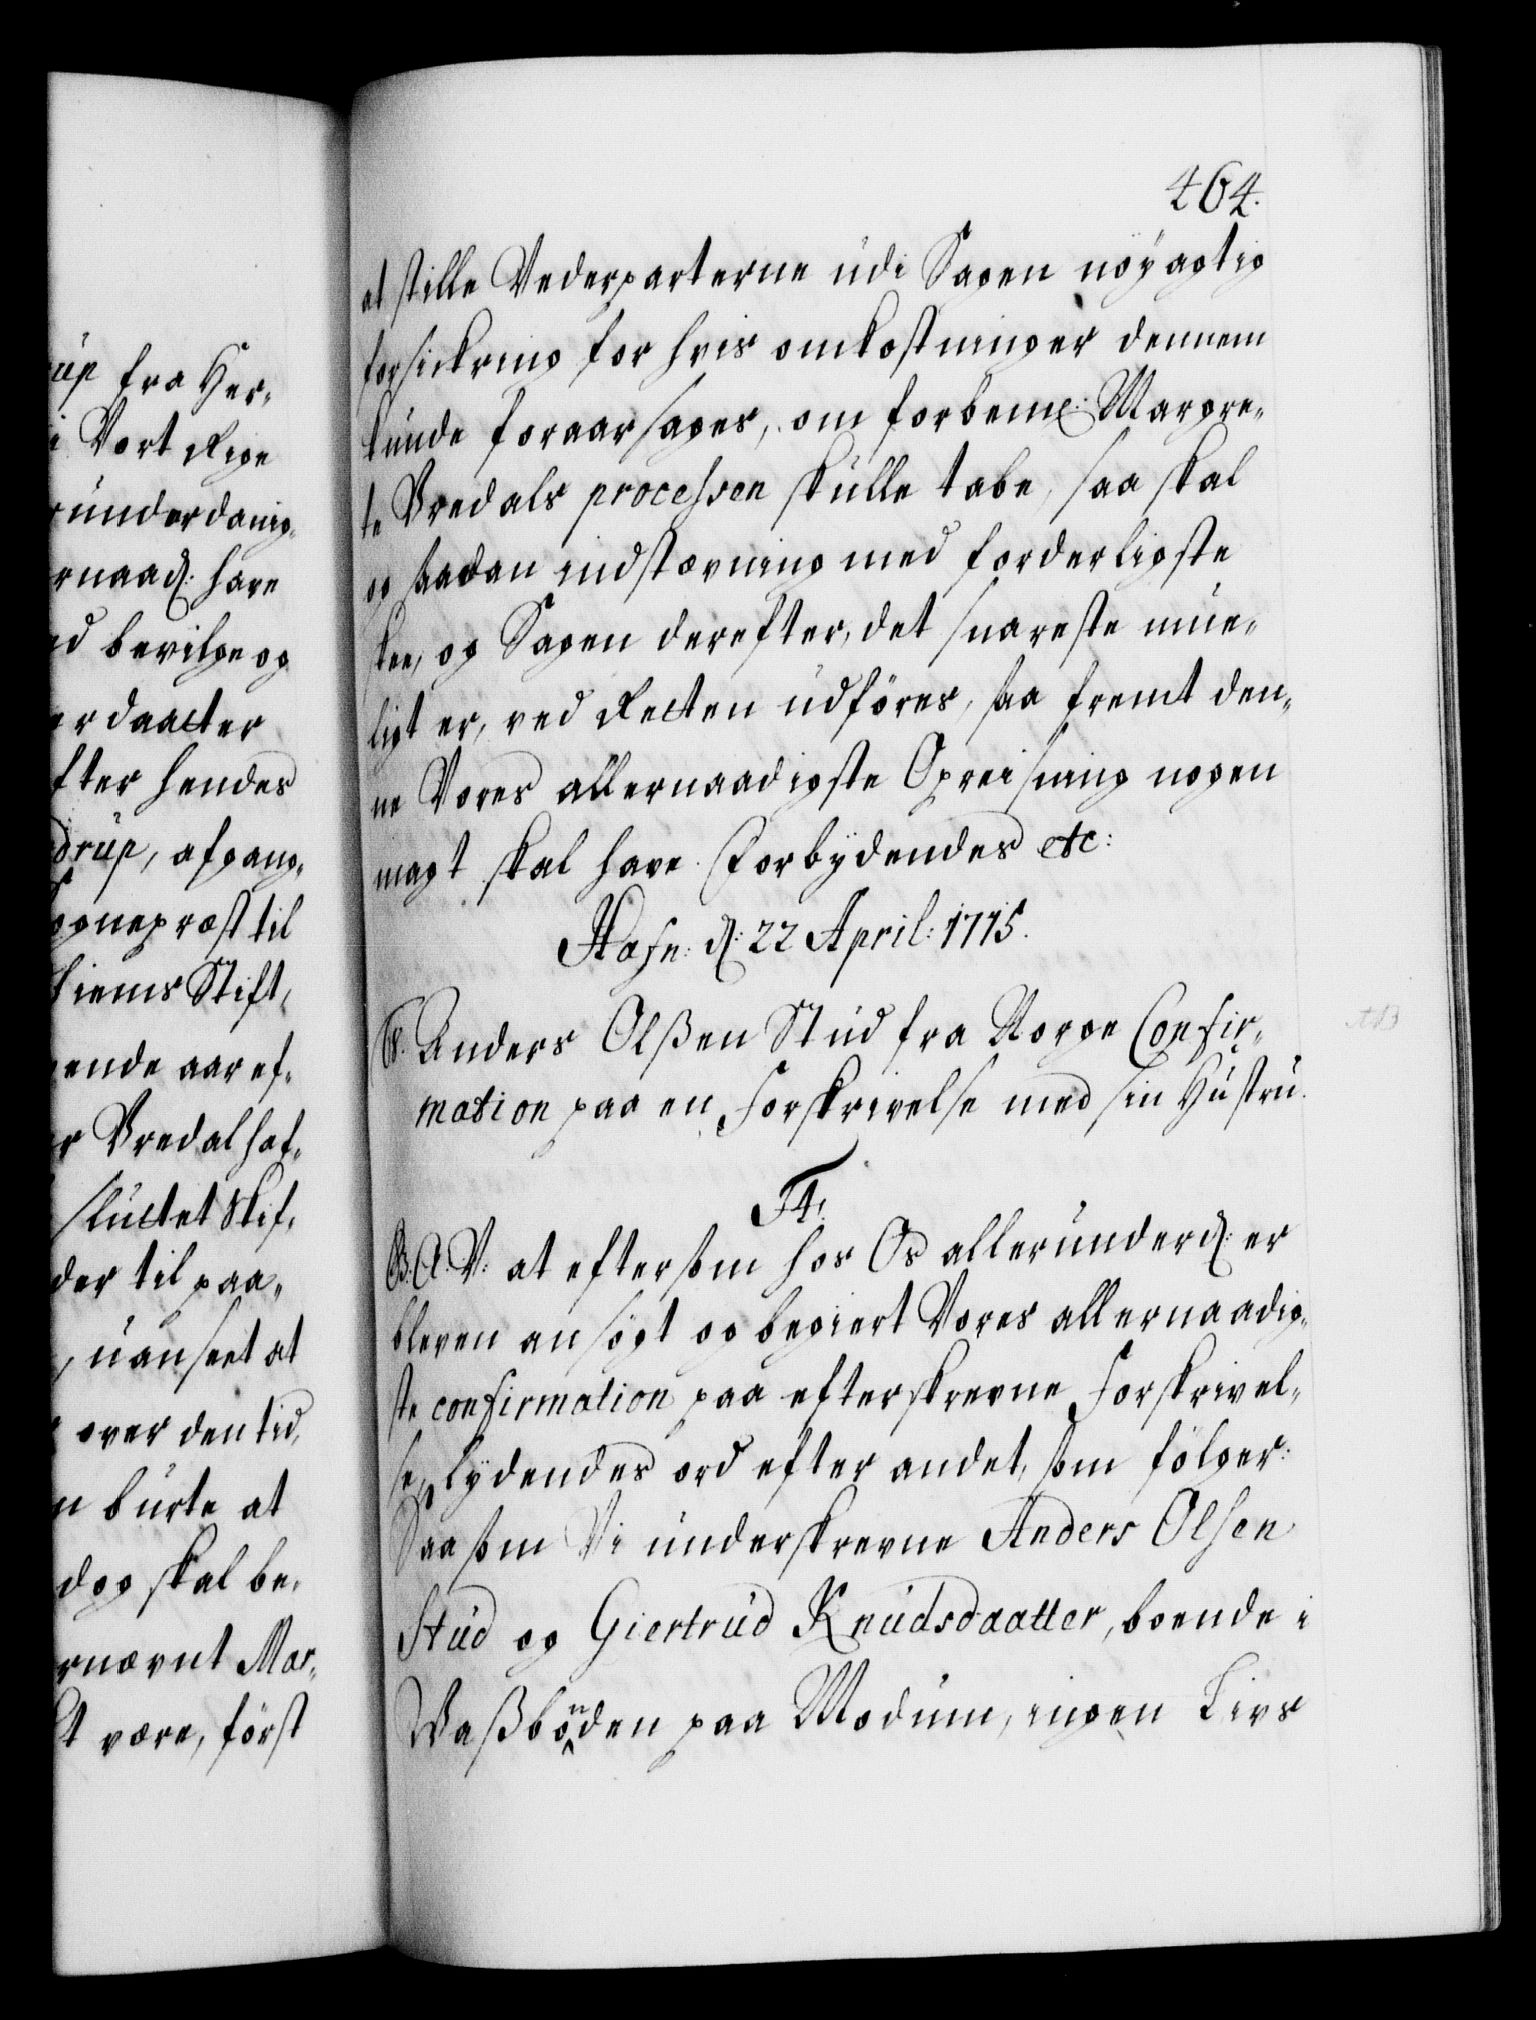 464.
at stille Vederparterne udi Sagen nöÿagtig
forsickring for hvis omkostninger dennem
kunde foraarsages, om forbemte: Margre-
te Bredals processen skulle tabe, saa skal
og saadan indstævning med forderligste
skee, og Sagen derefter, det snareste mue-
ligt er, ved Retten udföres, saa fremt den-
ne Vores allernaadigste Opreisning nogen
magt skal have. Forbÿdendes etc:
Hafn: d: 22 April: 1715.
Anders Olßen Stud fra Norge Confir-
mation paa en Forskrivelse med sin Hustru.
F4.
B. A. V: at eftersom hos Os allerunderd: er
bleven ansögt og begiert Vores allernaadig-
ste confirmation paa efterskrevne Forskrivel-
se, lÿdendes ord efter andet, som fölger:
Saasom Vi underskrevne Anders Olsen
Stud og Giertrud Knudsdaatter, boende i
Waßbonden paa Modum, ingen Livs
up fra Her-
i Vort Rige
underdanig-
rnaad: have
d bevilge og
erdaatter
fter hendes
drup, afgang-
ognepræst til
hiems Stift,
ende aar ef-
r Bredal haf-
sluttet Skif-
der til paa-
, uanseet at
over den tid,
n burte at
dog skal be-
rnævnt Mar-
t være, först